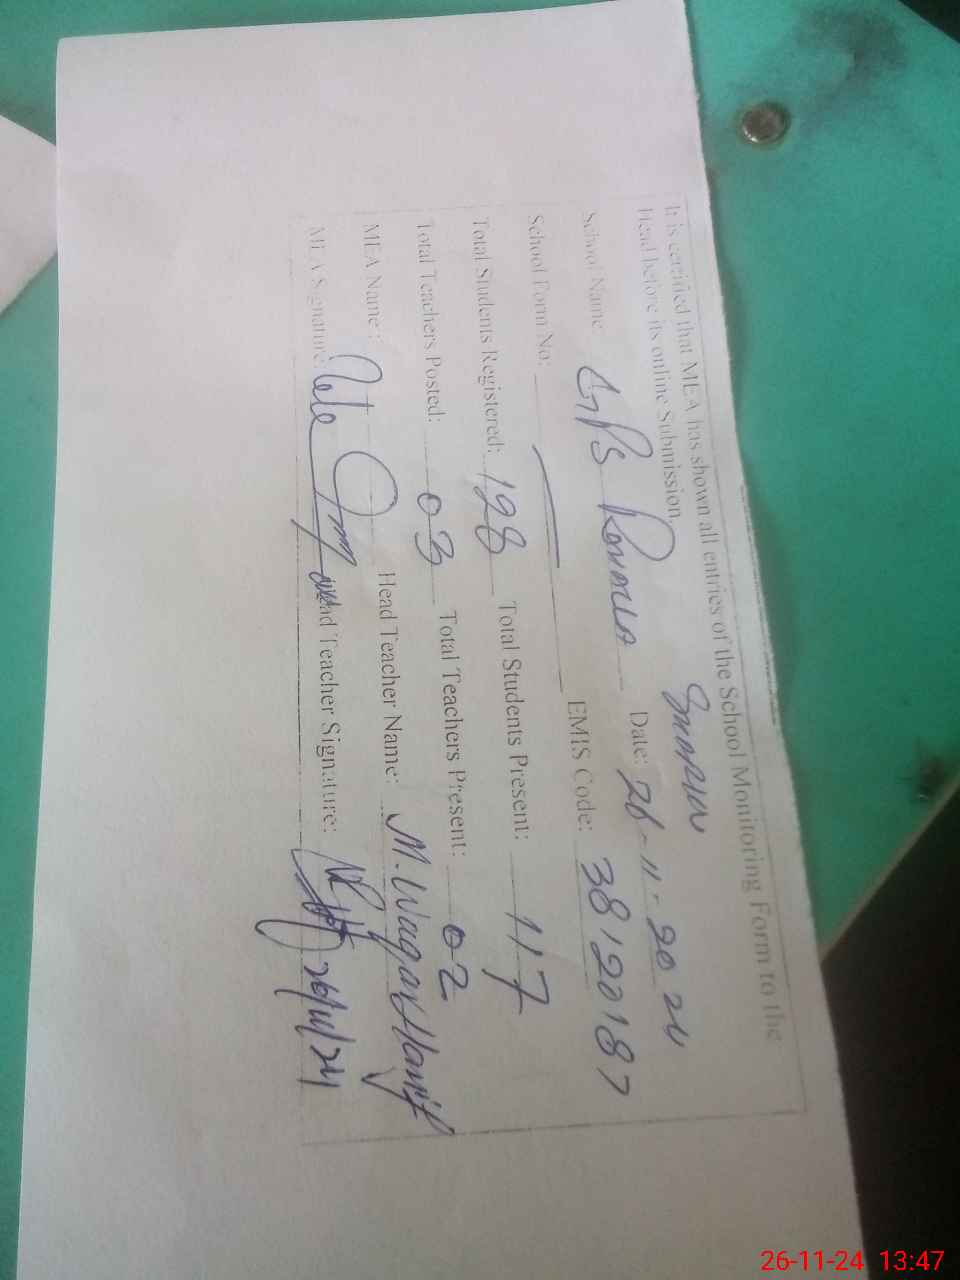 It is certified that MEA has shown all entries of the School Monitoring Form to the
Head before its online Submission.
School Name: GPS Date: 26-11-2024
School Form No: EMIS Code: 38120187
Total Students Registered: 128 Total Students Present: 117
Total Teachers Posted: 03 Total Teachers Present: 02
MEA Name: Head Teacher Name: M. Waqar Hanif
MEA Signature: Head Teacher Signature: 26/11/24
26-11-24 13:47